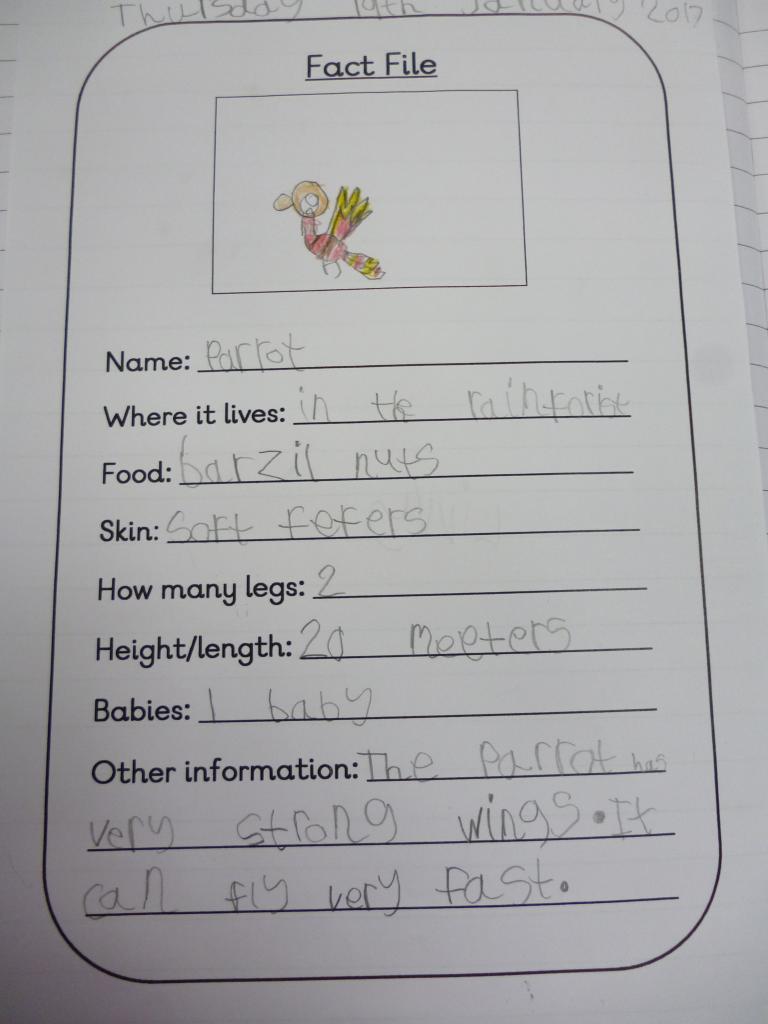 Thursday 19th January 2017
Fact File
Name: Parrot
Where it lives: in the rainforist
Food: barzil nuts
Skin: Soft fefers
How many legs: 2
Height/length: 20 meeters
Babies: 1 baby
Other information: The Parrot has
very strong wings. It
can fly very fast.